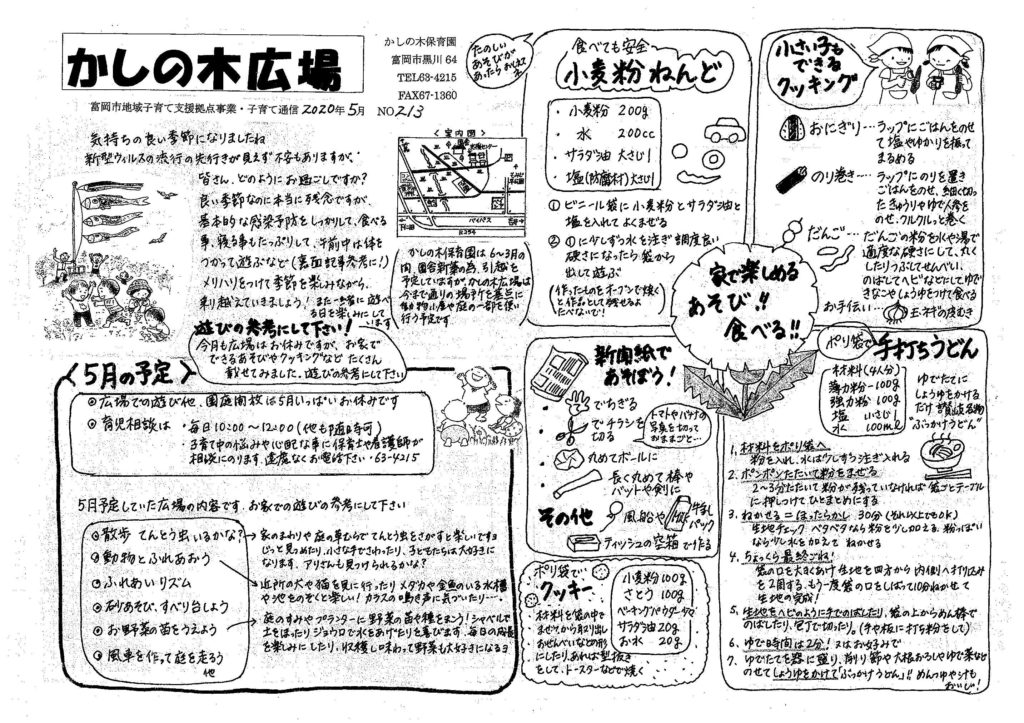 かしの木広場
富岡市地域子育て支援拠点事業・子育て通信 2020年5月
かしの木保育園
富岡市黒川64
TEL63-4215
FAX67-1360
NO213
気持ちの良い季節になりましたね
新型ウィルスの流行の先行きが見えず不安もありますが、
皆さん、どのようにお過ごしですか?
良い季節なのに本当に残念ですが、
基本的な感染予防をしっかりして、食べる
事、寝る事もたっぷりして、午前中は体を
つかって遊ぶなど(裏面記事参考に!)
メリハリをつけて季節を楽しみながら、
乗り越えていきましょう!また一緒に遊べ
る日を楽しみにして
います
<案内図>
バイパス
R254
かしの木保育園は6~3月の
内、園舎新築の為、引越を
予定していますが、かしの木広場は
今まで通りの場所を基点に
行う予定です
遊びの参考にして下さい!
今月も広場はお休みですが、お家で
できるあそびやクッキングなど たくさん
載せてみました。遊びの参考にして下さい
<5月の予定>
◎広場での遊び他、園庭開放は5月いっぱいお休みです
◎育児相談は・毎日10:00~12:00(他も随時可)
・子育て中の悩みや心配な事に保育士や看護師が
相談にのります。遠慮なくお電話下さい・63-4215
5月予定していた広場の内容です。お家での遊びの参考にして下さい
◎散歩 てんとう虫いるかな?
◎動物とふれあおう
◎ふれあいリズム
◎砂あそび、すべり台しよう
◎お野菜の苗をうえよう
◎風車を作って庭を走ろう
他
家のまわりや庭の草むらでてんとう虫をさがすと楽しいですョ
じっと見つめたり、小さな手でさわったり、子どもたちは大好きに
なります。アリさんも見つけられるかな?
近所の犬や猫を見に行ったりメダカや金魚のいる水槽
や池をのぞくと楽しい!カラスの鳴き声に気づいたり…
庭のすみやプランターに野菜の苗や種をまこう!シャベルで
土をほったりジョウロで水をあげたりを喜びます。毎日の成長
を楽しみにしたり、収穫し味わって野菜も大好きになるョ
たのしい
あそびが
あったら
食べても安全
小麦粉ねんど
・小麦粉 200g
・水 200cc
・サラダ油 大さじ1
・塩(防腐材)大さじ1
①ビニール袋に小麦粉とサラダ油と
塩を入れてよくまぜる
②①に少しずつ水を注ぎ調度良い
硬さになったら袋から
出して遊ぶ
(作ったものをオーブンで焼く
と作品として残せるよ
たべないで!)
家で楽しめる
あそび!!
食べる!!
小さい子も
できる
クッキング
おにぎり…ラップにごはんをのせ
て塩やゆかりを振って
まるめる
のり巻き…ラップにのりを置き
ごはんをのせ、細く切っ
たきゅうりやゆで人参を
のせ、クルクルッと巻く
だんご…だんごの粉を水や湯で
適度な硬さにして、丸く
したりつぶしてせんべい、
のばしてヘビなどにしてゆで
きなこやしょうゆをつけて食べる
お手伝い…玉ネギの皮むき
新聞紙で
あそぼう!
でちぎる
でチラシを
切る
トマトやバナナの
写真を切って
おままごと…
丸めてボールに
長く丸めて棒や
バットや剣に
その他
風船や
牛乳
パック
ティッシュの空箱で作る
ポリ袋で
クッキー
小麦粉100g
さとう 100g
ベーキングパウダー少々
サラダ油20g
お水 20g
材料を袋の中で
まぜてから取り出し
おせんべいなどの形
にしたり、あれば型抜き
をして、トースターなどで焼く
ポリ袋で
手打ちうどん
材料(4人分)
薄力粉-100g
強力粉 100g
塩 小さじ1
水 100ml
ゆでたてに
しょうゆをかける
だけ 讃岐名物
"ぶっかけうどん"
1、材料をポリ袋へ
粉を入れ、水は少しずつ注ぎ入れる
2、ポンポンたたいて粉をまぜる
2~3分たたいて粉が残っていなければ袋ごとテーブル
に押しつけてひとまとめにする
3、ねかせる=ほったらかし 30分(それ以上でもOK)
生地チェック ベタベタなら粉を少し加える。粉っぽい
なら少し水を加えて ねかせる
4、ちょっくら最終ごね!
袋の口を大きくあけ生地を四方から内側へ折り込み
を2周する。もう一度袋の口をしばって10分ねかせて
生地の完成!
5、生地をヘビのように手でのばしたり、袋の上からめん棒で
のばしたり、包丁で切ったり。(手や板に打ち粉をして)
6、ゆで時間は2分!又はお好みで
7、ゆでたてを器に盛り、削り節や大根おろしやゆで菜など
のせてしょうゆをかけて「ぶっかけうどん」!!めんつゆや汁も
おいしい!